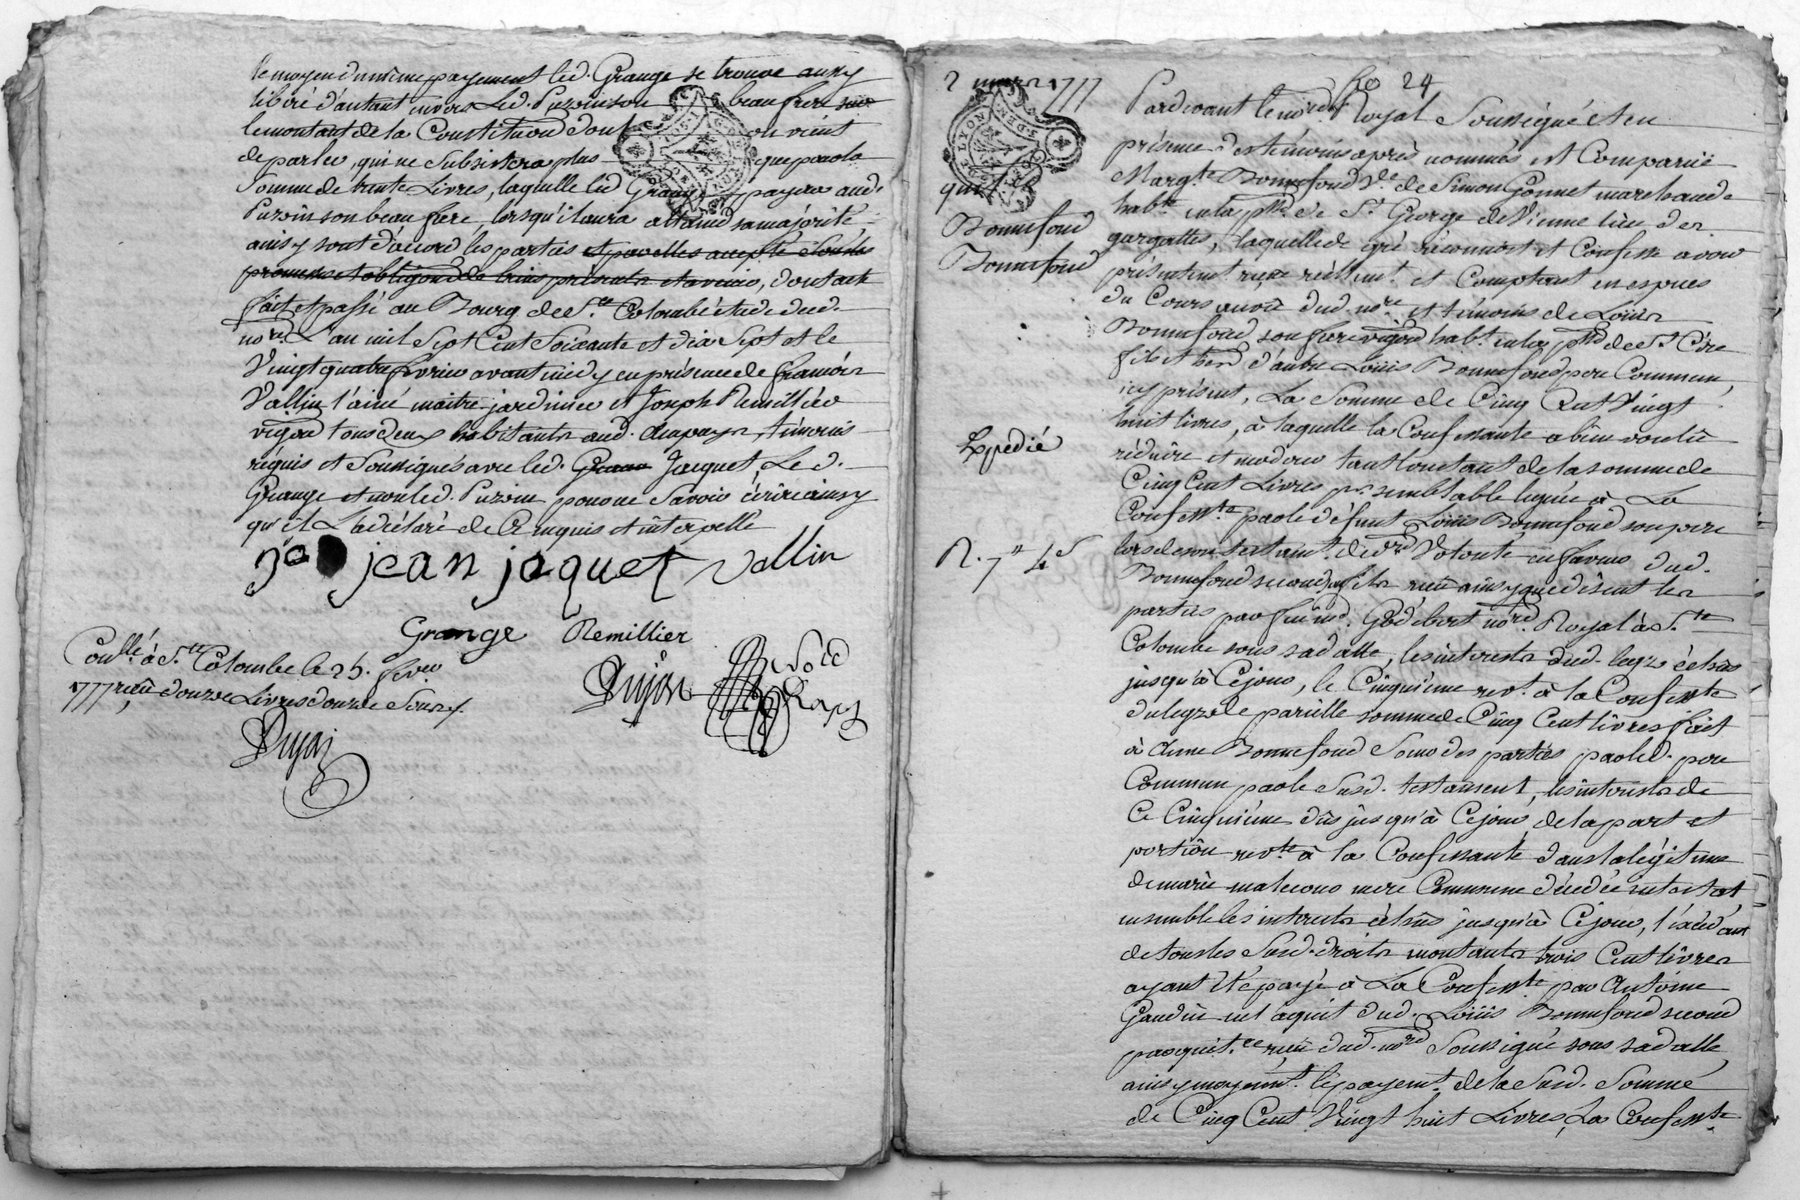 le moyen du même payement led. Grange se trouve aussy
libéré d'autant envers Led. Puzoin son beaufrere sur
le montant de la Constitution dont on vient
de parler, qui ne subsistera plus que pour la
Somme de trente Livres, laquelle led Grange payera aud.
Puzoin son beau frere, lorsqu'il aura attaind sa majorité
ainsy sont d'accord les parties
promesse et obligé de leurs presents et avenir, dont acte
fait et passé au Bourg de Ste. Colombe étude dud.
nore. L'an mil Sept Cent Soixante et dix Sept et le
Vingt quatre fevrier avant midy en présence de françois
Vallin l'ainé maitre jardinier et Joseph Remillier
vigron tous deux habitants aud. témoins
requis et Soussignés avec led. Jacquet Led.
Grange et non led. Puzoin pour ne Savoir écrire ainsy
qu'il L'a déclaré de Ce enquis et interpellé
jean jaquet Vallin
Grange Remillier
Conllé à Ste. Colombe le 25. fever
1777 reçu douze Livres douze Sous
Dujon
Dujon
2 mars 1777
fo 24
quitce
Bonnefond
Bonnefond
Expedié
R. 7tt 4s
Pardevant le nore. Royal Soussigné et en
présence des témoins après nommés est Comparue
Margte. Bonnefond Ve. de Simon Gonnet marchande
habte. en la psse. de St. George de Vienne lieu des
gargattes, laquelle de gré reconnoit et Confesse avoir
présentemt. reçue réellemt. et Comptant en especes
du Cours au vû dud. nore. et témoins de Louis
Bonnefond, son frere vigron habt. en la psse de St. Cire
fils et herd. d'autre Louis Bonnefond pere Commun,
icy présent, La Somme de Cinq Cent Vingt
huit livres, à laquelle la Confessante a bien voulu
réduire et moderer tant montant de la somme de
Cinq Cent Livres pr. semblable léguée à La
Confessante par le défunt Louis Bonnefond son pere
lors de son testamt. de dre. Volonté en faveur dud.
Bonnefond second fils reçu ainsy que disent les
parties par feu Me. Godebert nore. Royal à Ste
Colombe sous sa datte, les interests dud. legs échus
jusqu'à Cejour, le Cinquieme revt. à la Confessante
du legs de pareille somme de Cinq Cent livres fait
à Anne Bonnefond Sœur des parties par led. pere
Commun par le Susd. testament, les interests de
Ce Cinquiéme dûs jusqu'à Cejour, de la part et
portion revte. à la Confessante dans la légitime
de marie mere Commune décédée intestat,
ensemble les interests échus jusqu'à Cejour, l'excedant
de tous les Susd. droits montants trois Cent livres
ayant été payé à La Confessante par Antoine
Gaudin en l'aquit dud. Louis Bonnefond second
par quitce. reçue dud. nore Soussigné sous sa datte,
ainsy moyennt. le payemt. de la Susd. Somme
de Cinq Cent Vingt huit Livres, La Confessante